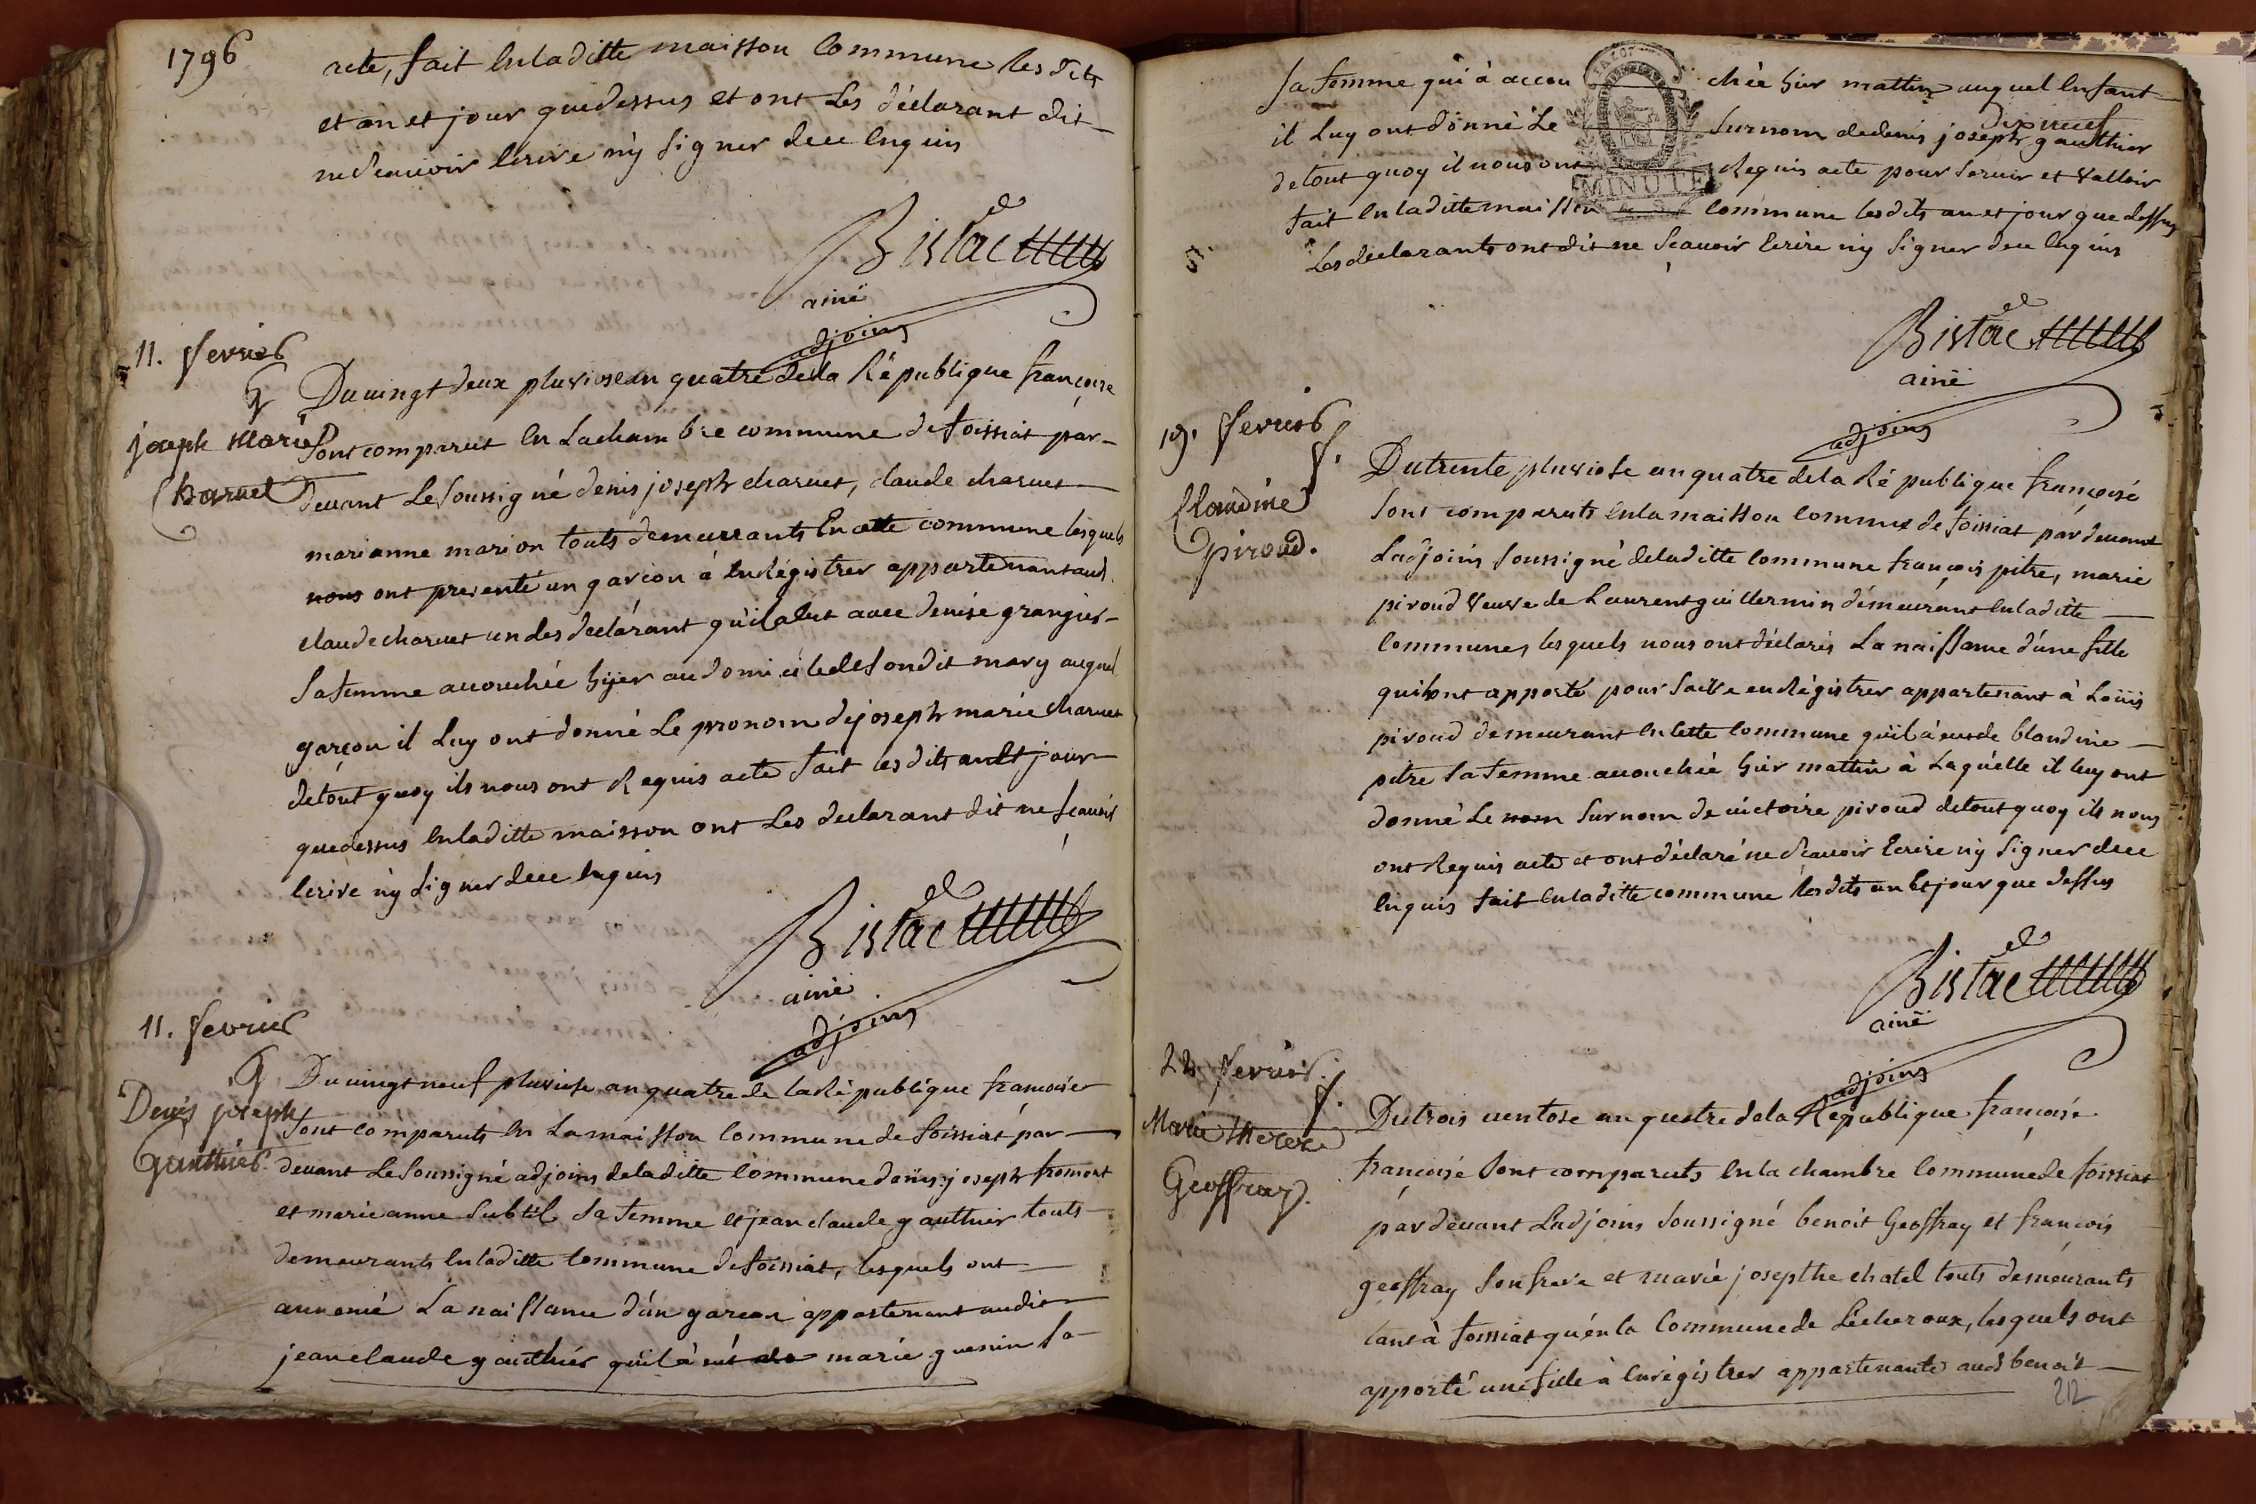 1796
rete, fait en laditte maisson Commune les dits
et an et jour que dessus et ont Les déclarant dit
ne scauvoir Ecrire ny signer dece enquis
Bistac
ainé
adjoins
11. fevrier
g
joseph marie
Charvet
Du vingt deux pluviose an quatre dela République françoise
sont comparut en La chambre commune de foissiat par-
devant Le soussigné denis joseph charvet, claude charvet
marianne marion touts demeurrants En cette commune lesquels
nous ont presenté un garcon á Enrégistrer appartenant aud.
claude charvet un des declárant qu'il a eut avec denise grangier
sa femme accouchée hyer au domicile de sondit mary auquel
garçon il Luy ont donné Le pronom de joseph marie charvet
de tout quoy ils nous ont Requis acte fait les dits an et jour
que dessus en laditte maisson ont Les declarant dit ne scavoir
Ecrire ny signer dece enquis
Bistac
ainé
adjoins
11. fevrier
g
Denis joseph
Gauthier
Du vingt neuf pluviose an quatre de la République francoise
sont comparuts en La maisson Commune de foissiat par
devant Le soussigné adjoins de laditte Commune denis joseph fromont
et marie anne subtil sa femme et jean claude gauthier touts
demeurants en laditte Commune de foissiat, lesquels ont
annoncé La naissance d'un garcon appartenant audit
jean claude gauthier qu'il à eut de marie guenin sa
sa femme qui à accou chée hier mattin auquel Enfant
dix neuf
il Luy ont donné Le surnom de denis joseph gauthier
de tout quoy il nous ont Requis acte pour servir et valloir
MINUTE
fait en laditte maisson Commune les dits an et jour que dessus
Les declarants ont dit ne scavoir Ecrire ny signer dece enquis
Bistac
ainé
adjoins
19. fevrier
f.
Claudine
piroud.
Du trente pluviose an quatre de la République françoise
sont comparuts en la maisson Commune de foissiat par devant
L'adjoins soussigné de laditte Commune françois pitre, marie
piroud veuve de Laurent guillermin demeurant en laditte
Commune, lesquels nous ont déclarés La naissance d'une fille
qu'il ont apporté pour faire enrégistrer appartenant à Loüis
piroud demeurant en Cette Commune qu'il à eut de blandine
pitre sa femme accouchée hier mattin à Laquelle il luy ont
donné Le nom surnom de victoire piroud de tout quoy ils nous
ont Requis acte et ont déclaré ne scavoir Ecrire ny signer dece
enquis fait en laditte commune les dits an et jour que dessus
Bistac
ainé
adjoins
22 fevrier.
f.
Marie
Geoffray.
Du trois ventose an quatre de la République françoise
françoise sont comparuts en la chambre Commune de foissiat
par devant L'adjoins soussigné benoit Geoffray et françois
geoffray son frere et marie josepthe chatel touts demeurants
tant à foissiat qu'en la Commune de Lécheroux, lesquels ont
apporté une fille à Enrégistrer appartenante aud benoit
212